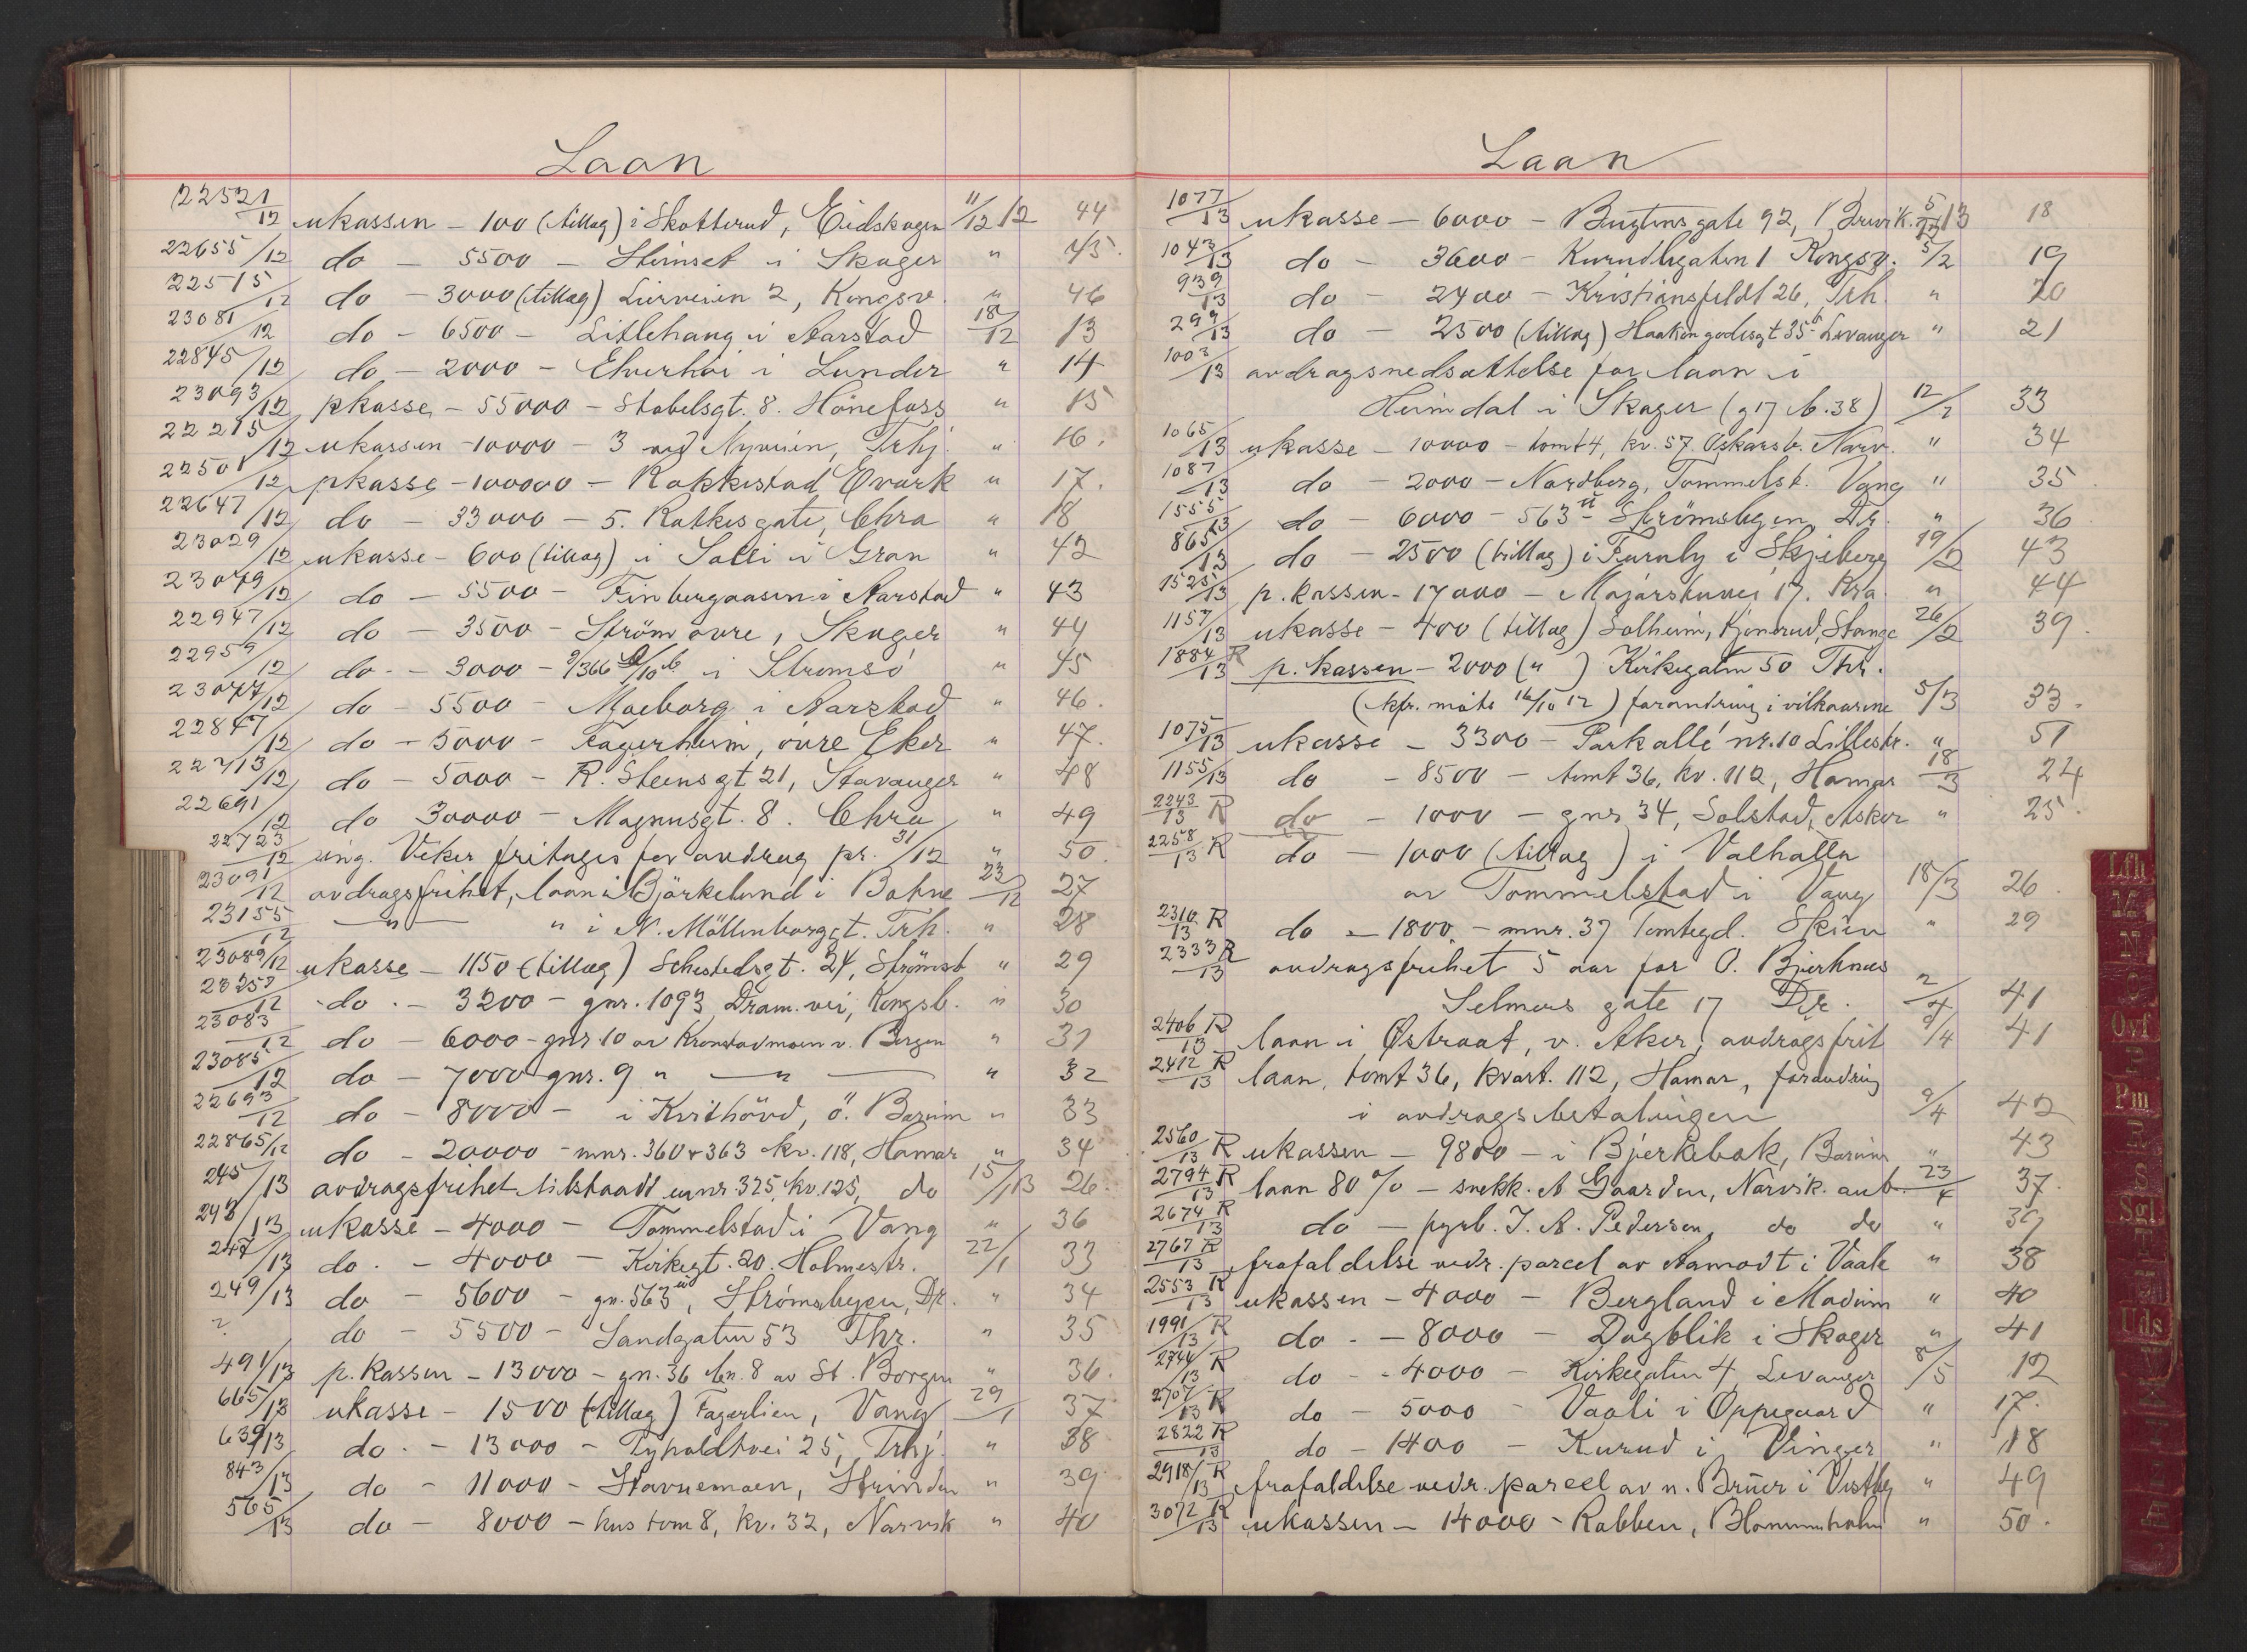 Laan
22521/12 ukassen - 100 (tillæg) i Skotterud, Eidskogen 11/12 12 44
22655/12 do - 5500 - Steinset i Skoger " 45.
22515/12 do - 3000 (tillæg) Lierveien 2, Kongsv. " 46
23081/12 do - 6500 - Litlehaug i Aarstad 18/12 13
22845/12 do - 2000 - Elverhöi i Lunder " 14
23093/12 pkasse - 55000 - Stabelsgt. 8. Hönefoss " 15
22215/12 ukassen - 10000 - 3 ved Nyveien, Trhj. " 16.
22501/12 pkasse - 100000 - Rakkestad E.verk " 17.
22647/12 do - 33000 - 5. Rathkesgate, Chra " 18
23029/12 ukasse - 600 (tillæg) i Solli i Gran " 42
23079/12 do - 5500 - Finbergaasen i Aarstad " 43
22947/12 do - 3500 - Ström övre, Skoger " 44
22959/12 do - 3000 - i Strömsö " 45
23077/12 do - 5500 - Moeborg i Aarstad " 46.
22847/12 do - 5000 - Fagerheim, övre Eker " 47.
22713/12 do - 5000 - R. Steinsgt 21, Stavanger " 48
22691/12 do 30000 - Magnusgt. 8. Chra " 49
22723/12 ing. Veker fritages for avdrag pr. 31/12 " 50.
23091/12 avdragsfrihet, laan i Björkelund i Botne 23/12 27
23155/12 — " — " i N. Möllenborggt. Trh. " 28
23089/12 ukasse - 1150 (tillæg) Schestedsgt. 24, Strömsö " 29
23253/12 do. - 3200 - gnr. 1093 Dram.vei, Kongsb. " 30
23083/12 do - 6000 - gnr. 10 av Kronstadmoen v. Bergen " 31
23085/12 do - 7000 gnr. 9 " — " — " 32
22693/12 do - 8000 - i Kvithövd, ö. Bærum " 33
22865/12 do - 20000 - mnr. 360 & 363 kv. 118, Hamar " 34
245/13 avdragsfrihet tilstaadt mnr. 325, kv. 125, do 15/1 13 26.
243/13 ukasse - 4000 - Tommelstad i Vang " 36
247/13 do. - 4000 - Kirkegt. 20. Holmestr. 22/1 33
249/13 do - 5600 - gn. 563ii, Strömsbyen, Dr. " 34
? do - 5500 - Sandgaten 53 Thr. " 35
491/13 p. kassen - 13000 - gn. 36 bn. 8 av St. Borgen " 36.
665/13 ukasse - 1500 (tillæg) Fagerlien, Vang 29/1 37
639/13 do. - 13000 - Typaldtvei 25, Trhj. " 38
843/13 do - 11000 - Stavnemoen, Strinden " 39
565/13 do - 8000 - hus tom 8, kv. 32, Narvik " 40
Laan
1077/13 ukasse - 6000 - Bugtens gate 92, Brevik. 5/2 13 18
1043/13 do - 3600 - Kurudbgaten 1 Kongsv. 5/2 19
939/13 do - 2400 - Kristiansfeldt 26, Trh. " 20
299/13 do - 2500 (tillæg) Haakon godesgt 35b Levanger " 21
1003/13 avdragsnedsættelse for laan i
Heimdal i Skoger (g 17 b. 38) 12/2 33
1065/13 ukasse - 10000 - tomt 4, kv. 57 Oskarsb. Narv. " 34
1087/13 do - 2000 - Nordberg, Tommelst. Vang " 35
1555/13 do - 6000 - 563ii Strömsbyen Dr. " 36
865/13 do - 2500 (tillæg) i Furuly i Skjeberg 19/2 43
1525/13 p. kassen - 17000 - Majorstuvei 17. Kra. " 44
1157/13 ukasse - 400 (tillæg) Solheim, Kjonerud, Stange 26/2 39.
1884/13 R p. kassen - 2000 (") Kirkegaten 50 Thr.
(kfr. möte 16/10 12) forandring i vilkaarene 5/3 33.
1075/13 ukasse - 3300 - Parkallé nr. 10 Lillestr. " 51
1155/13 do - 8500 - tomt 36, kv. 112, Hamar 18/3 24
2243/13 R do - 1000 - gnr 34, Solstad, Asker " 25.
2258/13 R do - 1000 (tillæg) i Valhalla
av Tommelstad i Vang 18/3 26.
2310/13 R do - 1800 - mnr. 37 Tomtegd. Skien " 29
2333/13 R avdragsfrihet 5 aar for O. Bjerknes
Selmers gate 17 Dr. 2/4 41
2406/13 R laan i Østraat, v. Aker, avdragsfrit 9/4 41
2412/13 R laan, tomt 36, kvart. 112, Hamar, forandring
i avdragsbetalingen 9/4 42
2560/13 R ukassen - 9800 - i Bjerkebak, Bærum " 43
2794/13 R laan 80% - snekk. A Gaarden, Narvik. anb. 23/4 37.
2674/13 R do - pyrb. J. A. Pedersen, do do " 39
2767/13 R frafaldelse vedr. parcel av Aamodt i Vaale " 38
2553/13 R ukassen - 4000 - Bergland i Modum " 40
1991/13 R do. - 8000 - Dagblik i Skoger " 41
2744/13 R do - 4000 - Kirkegaten 4, Levanger 8/5 12
2707/13 R do - 5000 - Vaali i Oppegaard " 17.
2822/13 R do - 1400 - Kurud i Vinger " 18
2918/13 R frafaldelse vedr. parcel av n. Brüer i Vestby " 49
3072/13 R ukassen - 14000 - Rabben, Blommenholm " 50.
Lfh
M
N
O
Ovf
P
Pm
R
S
Sgl
T
Uds
V